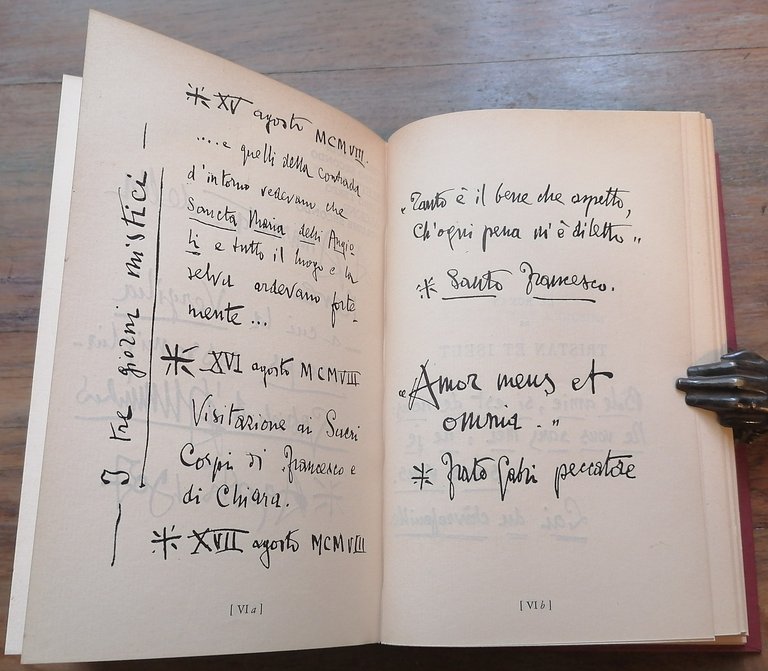 — I tre giorni mistici —
✳ XV agosto MCMVIII.
.... e quelli della contrada
d'intorno vedevano che
Sancta Maria delli Angio-
li e tutto il luogo e la
selva ardevano forte-
mente ...
✳ XVI agosto MCMVIII
Visitazione ai Sacri
Corpi di Francesco e
di Chiara.
✳ XVII agosto MCMVIII
[ VI a ]
„ Tanto è il bene che aspetto,
Ch'ogni pena m'è diletto „
✳ Santo Francesco.
„ Amor meus et
omnia . „
✳ Frate Gabri peccatore
[ VI b ]
TRISTAN ET ISEUT
Bele amie, si est de nus
Ne vus sanz mei, ne je
Lai du chèvrefeuille
Vergilia